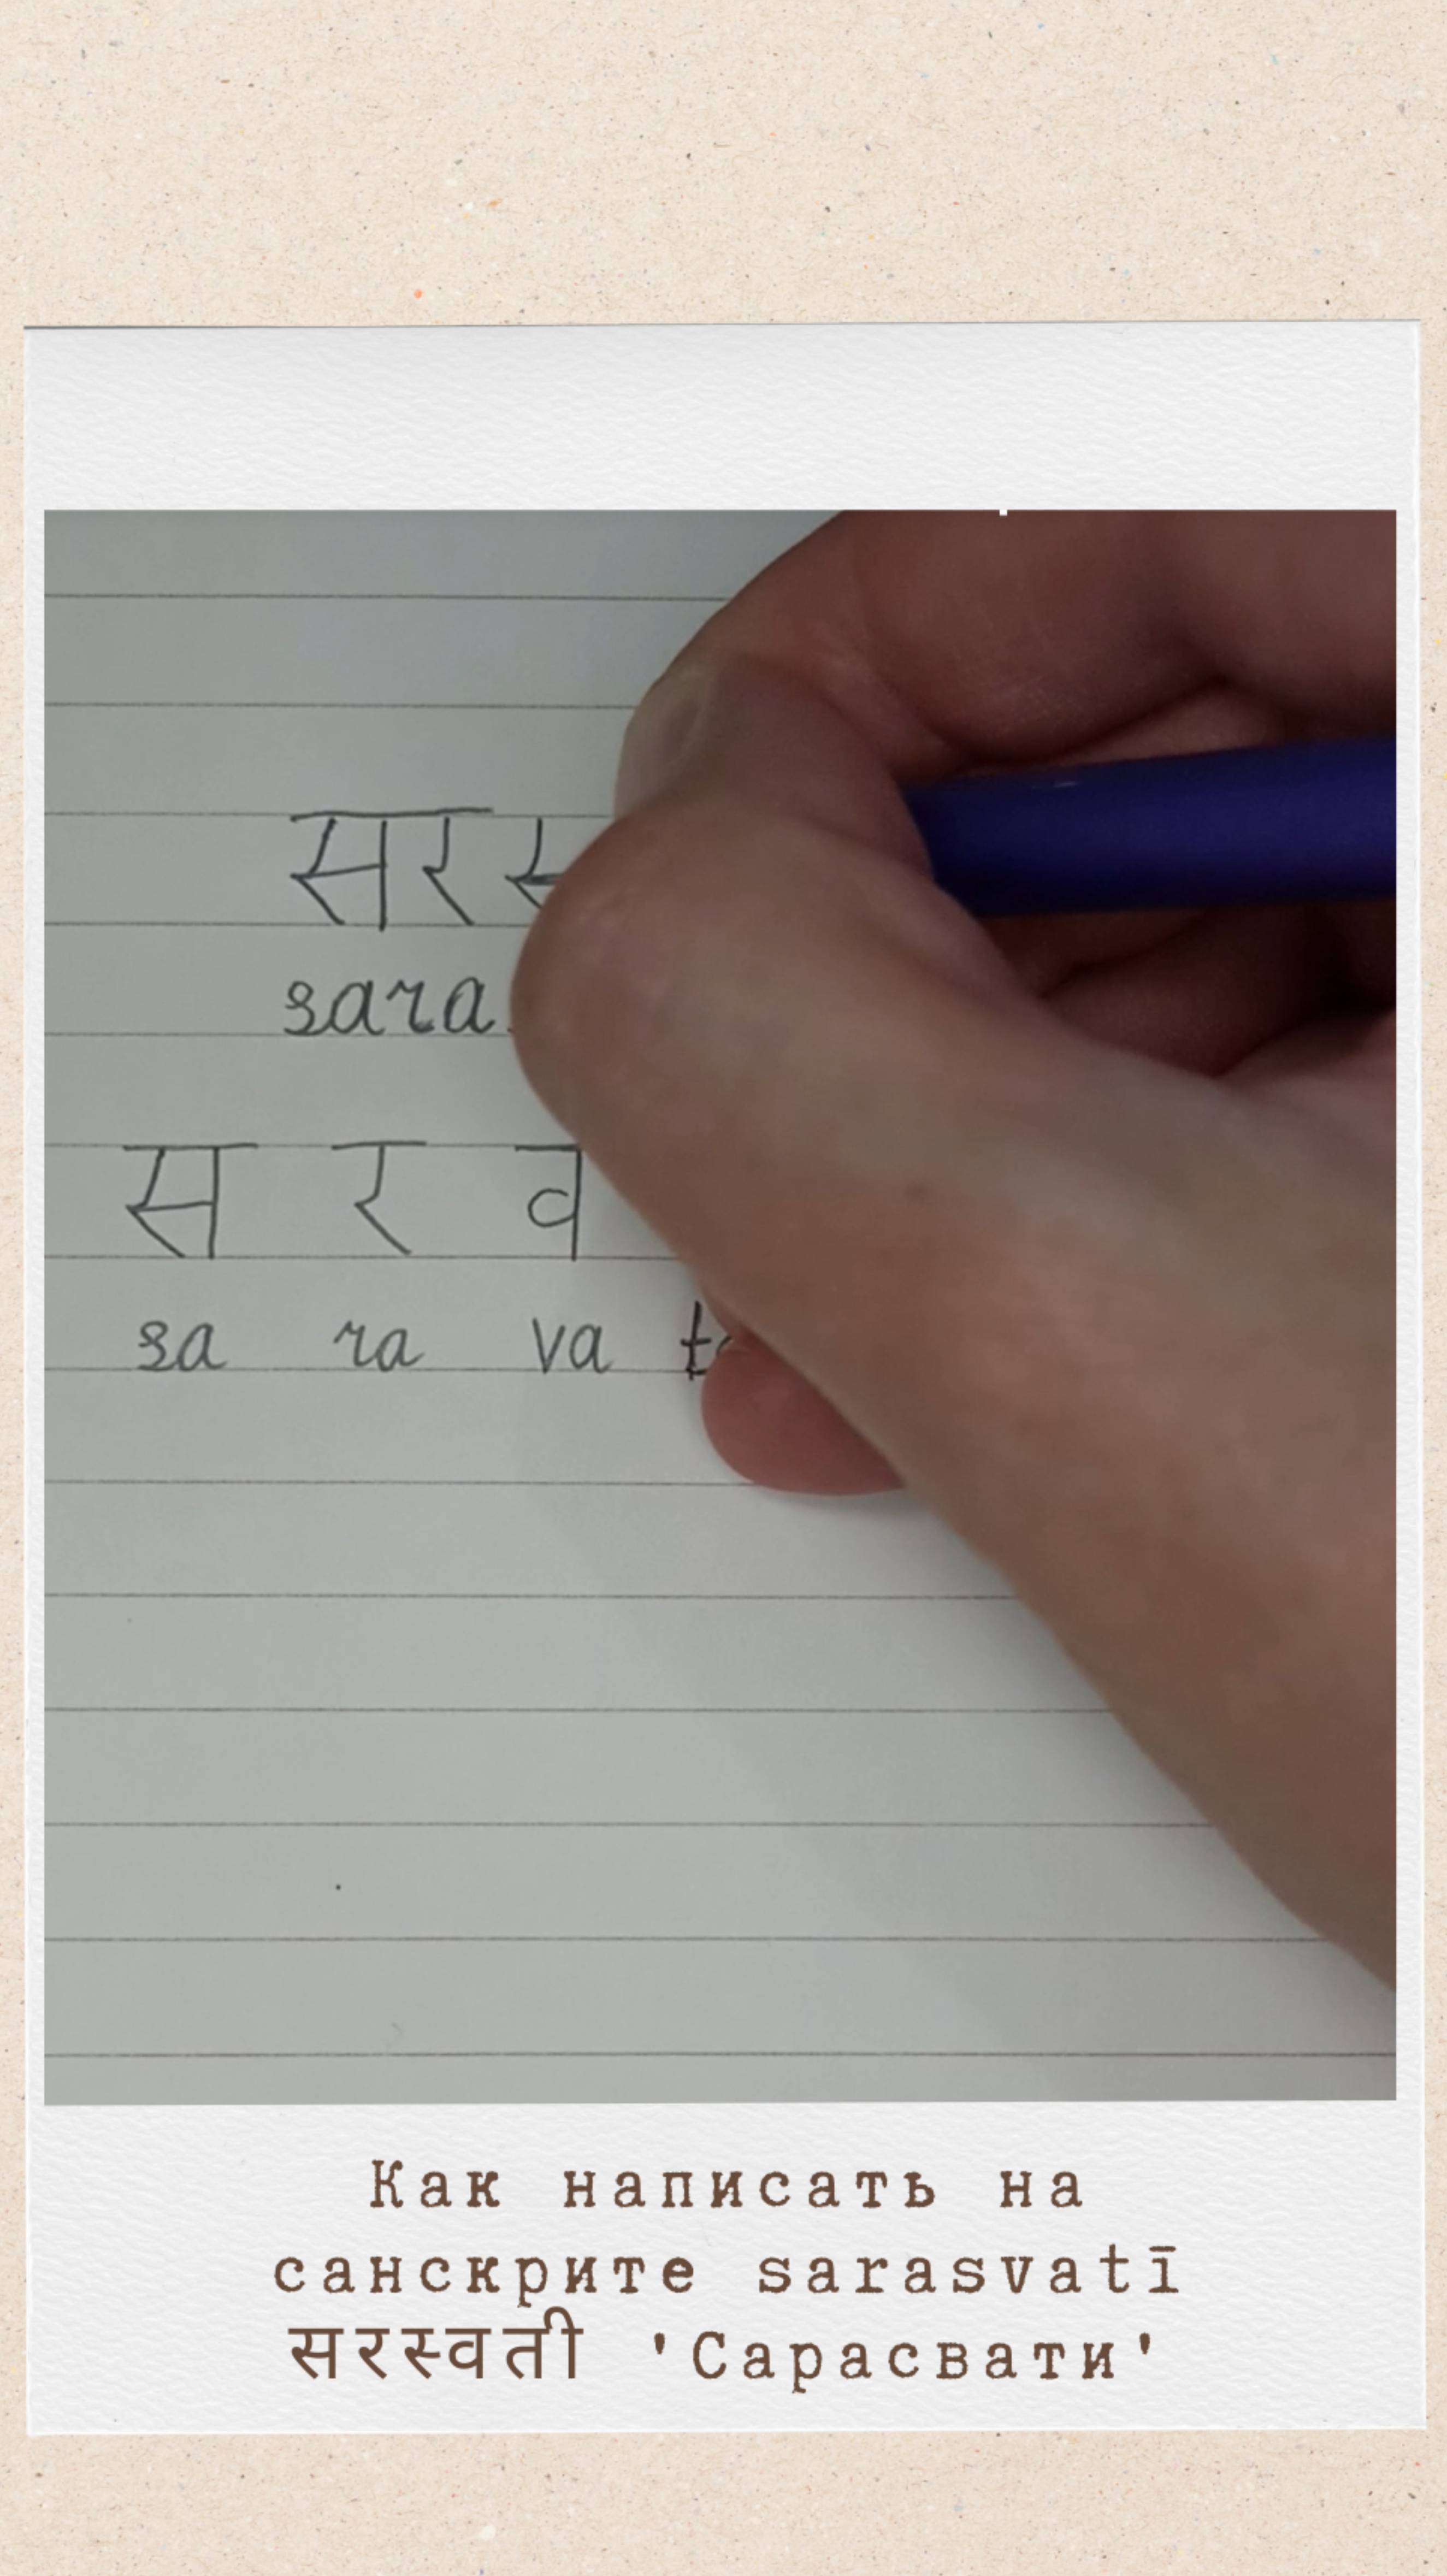 सरस्
sara
स र व
sa ra va t
Как написать на
санскрите sarasvatī
सरस्वती 'Сарасвати'